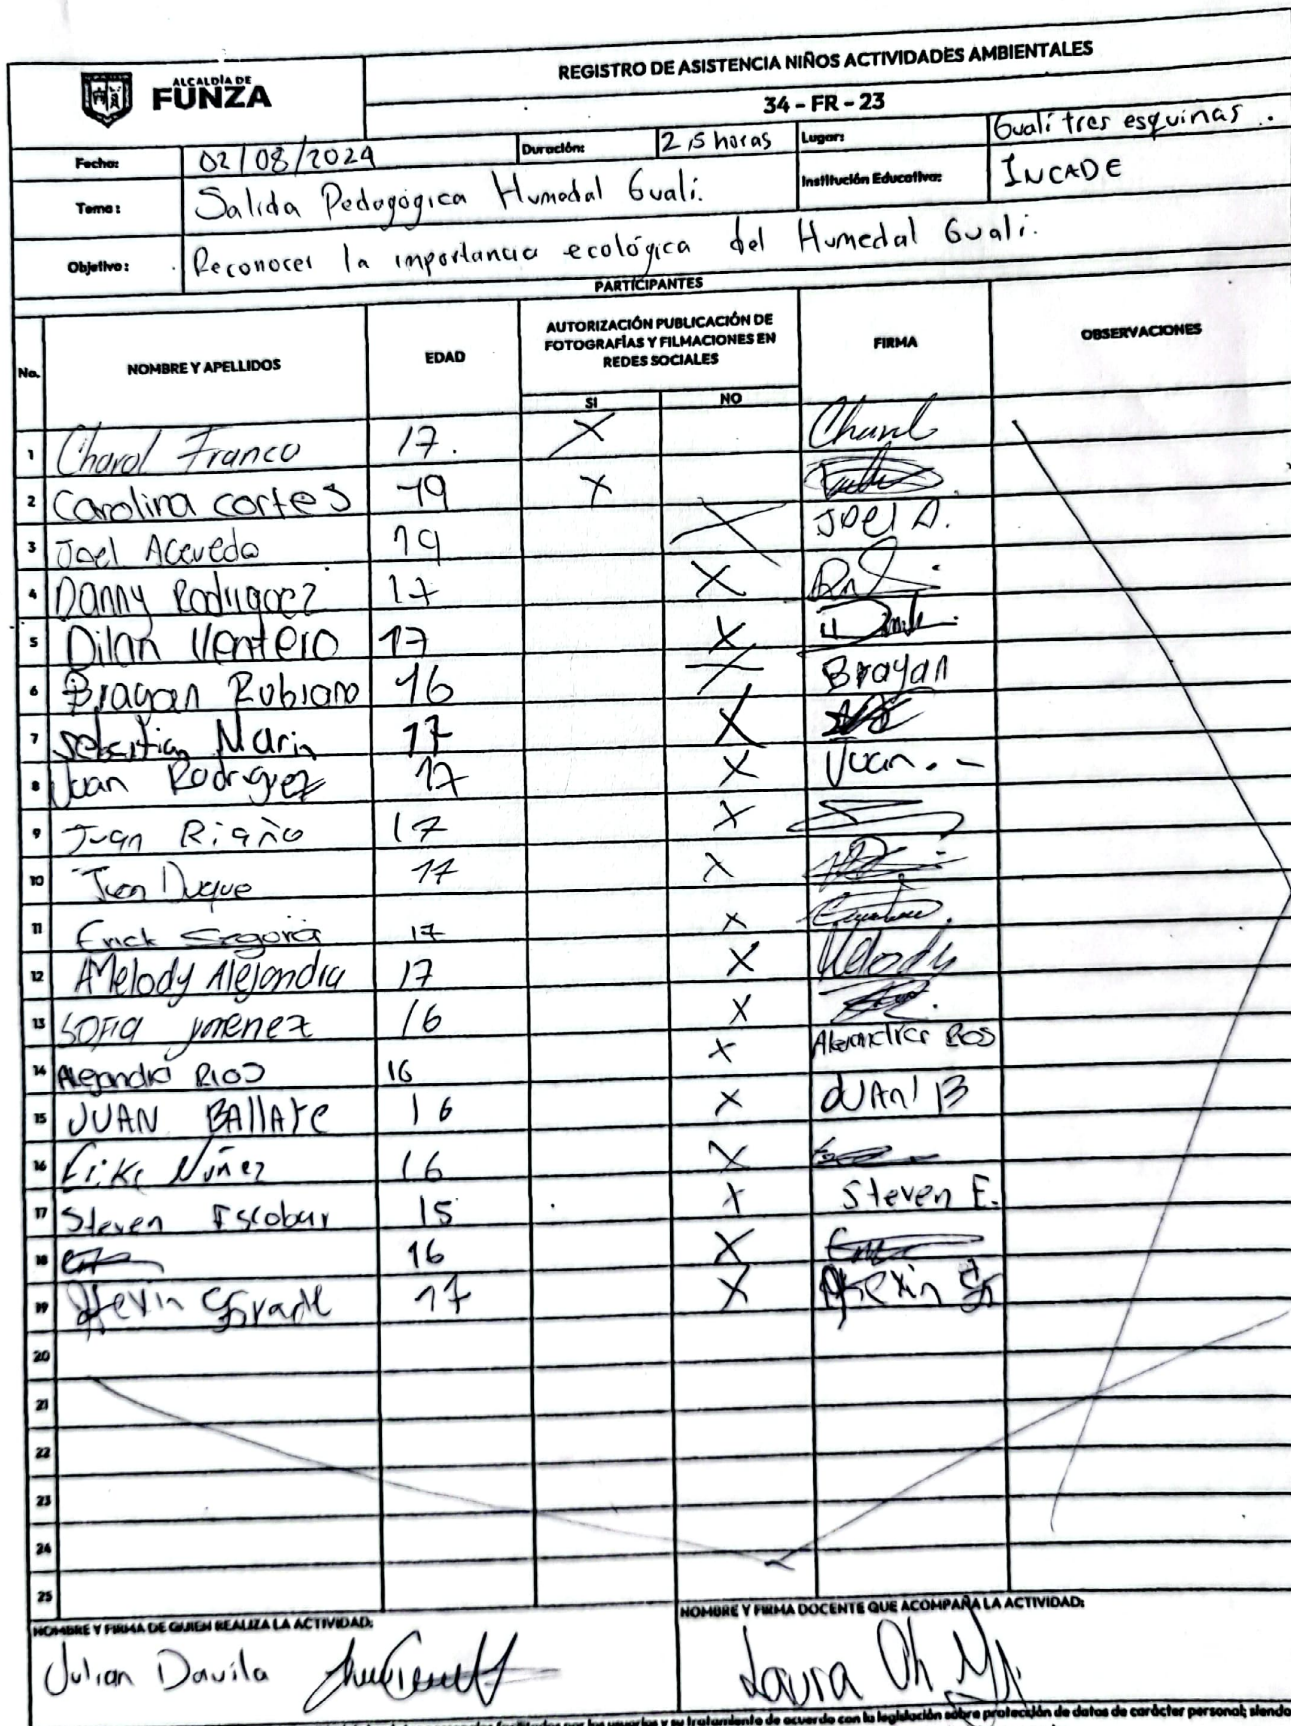 ALCALDÍA DE
FUNZA
REGISTRO DE ASISTENCIA NIÑOS ACTIVIDADES AMBIENTALES
34 - FR - 23
Fecha: 02/08/2024 Duración: 2,5 horas Lugar: Gualí tres esquinas
Tema: Salida Pedagógica Humedal Gualí. Institución Educativa: INCADE
Objetivo: Reconocer la importancia ecológica del Humedal Gualí.
PARTICIPANTES
No. NOMBRE Y APELLIDOS EDAD AUTORIZACIÓN PUBLICACIÓN DE FOTOGRAFÍAS Y FILMACIONES EN REDES SOCIALES FIRMA OBSERVACIONES
SI NO
1 Charol Franco 17. X Charol
2 Carolina cortes 19 X
3 Joel Acevedo 19 X Joel A.
4 Danny Rodriguez 17 X
5 Dilan Ventero 17 X
6 Brayan Rubiano 16 X Brayan
7 Sebastian Marin 17 X
8 Juan Rodriguez 17 X Juan
9 Juan Riaño 17 X
10 Juan Duque 17 X
11 Erick Segovia 17 X
12 Melody Alejandra 17 X Melody
13 SOFIA Jimenez 16 X
14 Alejandra RIOS 16 X Alejandra Rios
15 JUAN BALLATE 16 X JUAN B
16 Erika Nuñez 16 X
17 Steven Escobar 15 X Steven E.
18 16 X
19 Kevin 17 X Kevin
20
21
22
23
24
25
NOMBRE Y FIRMA DE QUIEN REALIZA LA ACTIVIDAD: NOMBRE Y FIRMA DOCENTE QUE ACOMPAÑA LA ACTIVIDAD:
Julian Davila Laura
por los usuarios y su tratamiento de acuerdo con la legislación sobre protección de datos de carácter personal; siendo